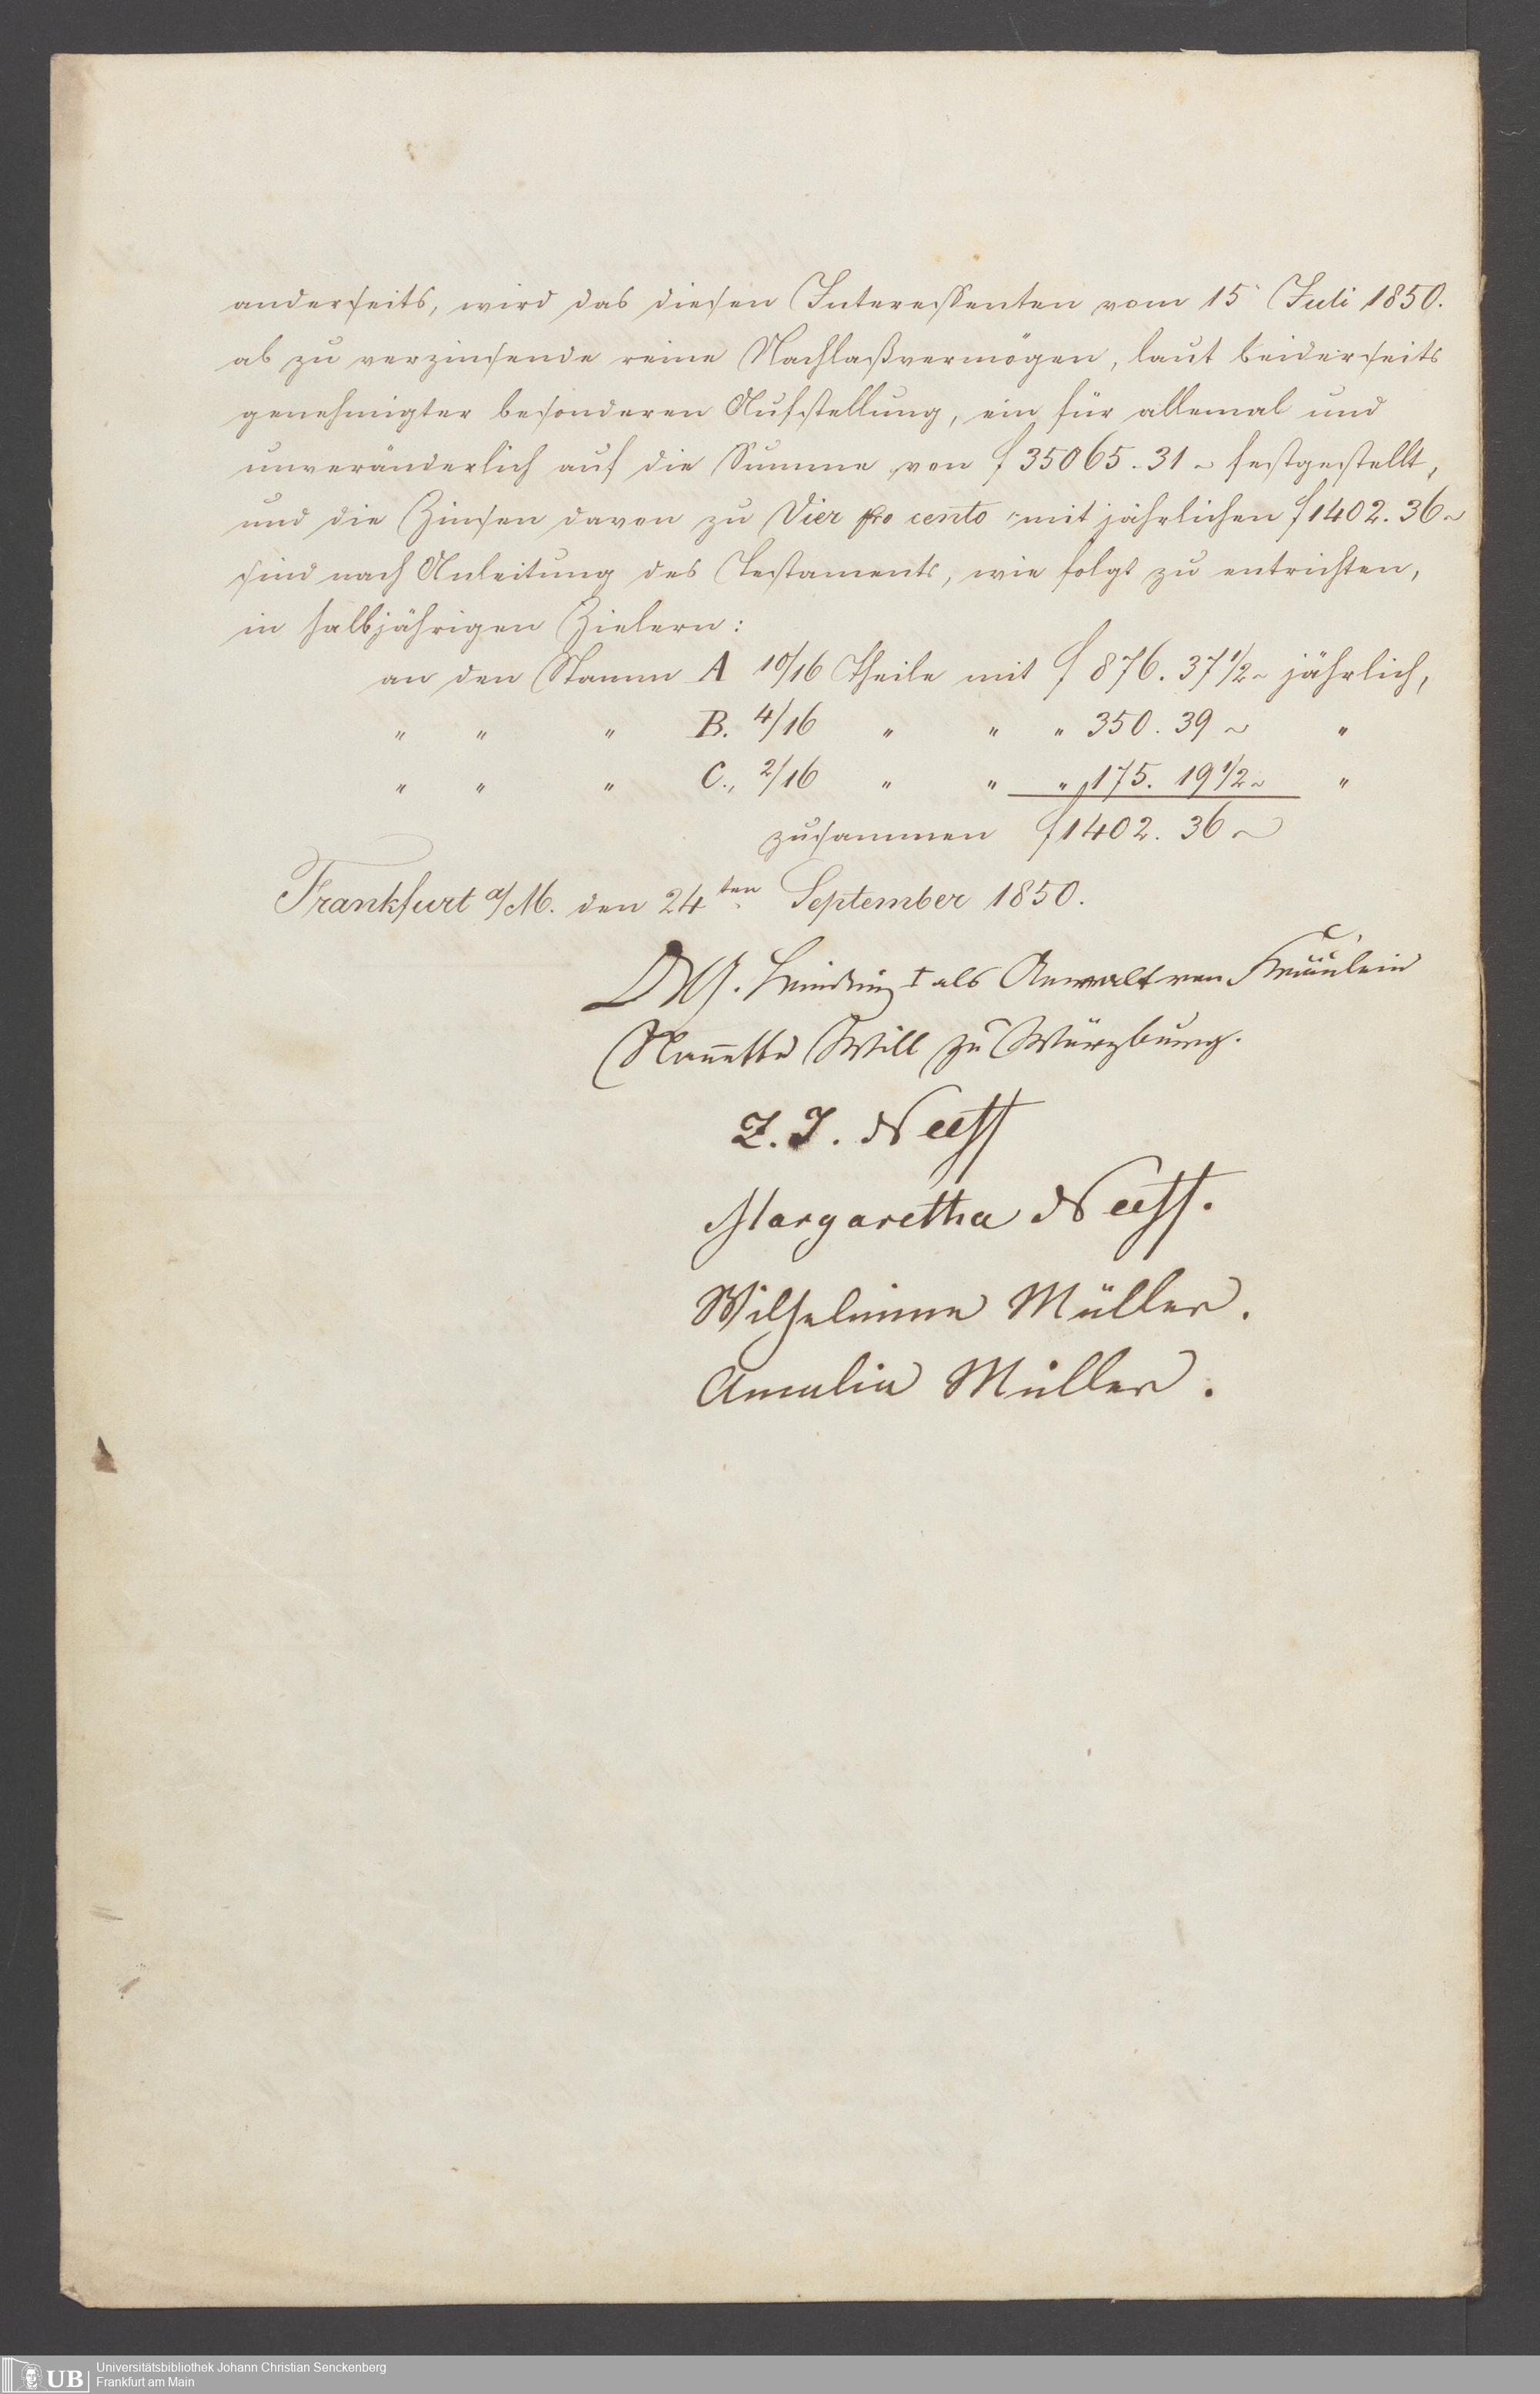 anderseits, wird das diesen Interessenten vom 15 Juli 1850.
ab zu verzinsende reine Nachlaßvermögen, laut beiderseits
genehmigter besonderen Aufstellung, ein für allemal und
unveränderlich auf die Summe von f 35065.31 ~ festgestellt,
und die Zinsen davon zu Vier pro cento mit jährlichen f 1402.36 ~
sind nach Anleitung des Testaments, wie folgt zu entrichten,
in halbjährigen Zielern:
an den Stamm A 10/16 Theile mit f 876. 37 1/2 ~ jährlich,
" " " B. 4/16 " " " 350. 39 ~ "
" " " C., 2/16 " " " 175. 19 1/2 ~ "
zusammen f 1402. 36 ~
Frankfurt a/M. den 24ten September 1850.
als Anwalt von Fräulein
Nanette Will zu Würzburg.
Z. J. Neeff
Margaretha Neeff.
Wilhelmine Müller.
Amalia Müller.
UB Universitätsbibliothek Johann Christian Senckenberg
Frankfurt am Main